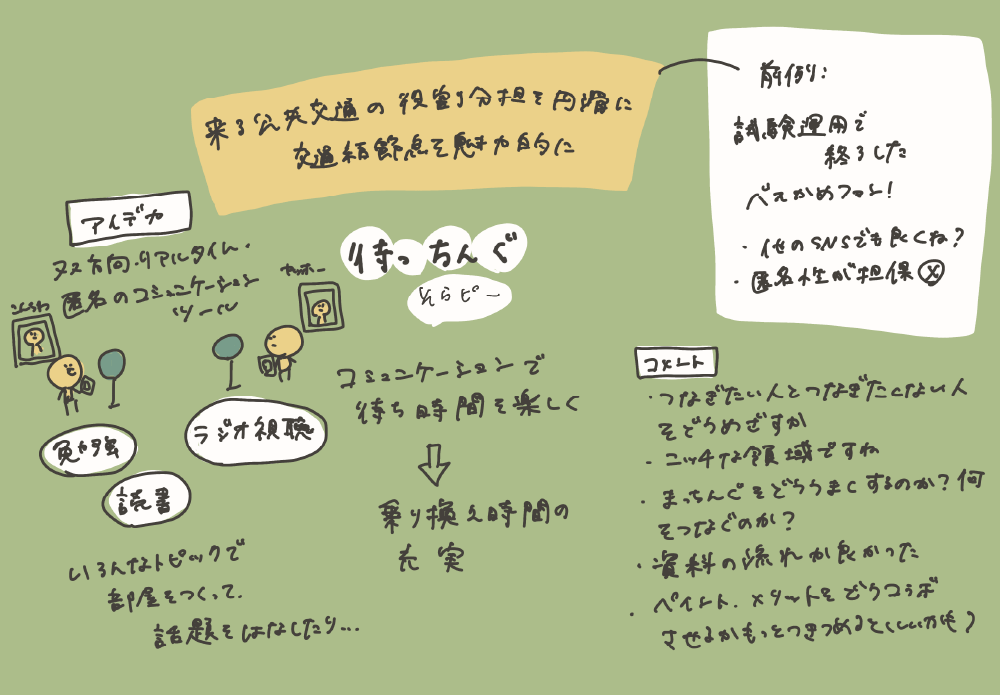 来る公共交通の役割分担を円滑に
交通結節点を魅力的に
前例:
試験運用で
終了した
ベストかめフォン!
・他のSNSでも良くね?
・匿名性が担保 ×
アイデア
双方向・リアルタイム・
匿名のコミュニケーション
ツール
こんちわ
ヤッホー
待っちんぐ
そらピー
勉強
ラジオ視聴
読書
いろんなトピックで
部屋をつくって、
話題をはなしたり...
コミュニケーションで
待ち時間を楽しく
乗り換え時間の
充実
コメント
・つなぎたい人とつなぎたくない人
をどうめざすか
・ニッチな領域ですね
・まっちんぐをどううまくするのか?何
をつなぐのか?
・資料の流れが良かった
・ペイント、メリットをどうコラボ
させるかもっとつきつめるといいかも?